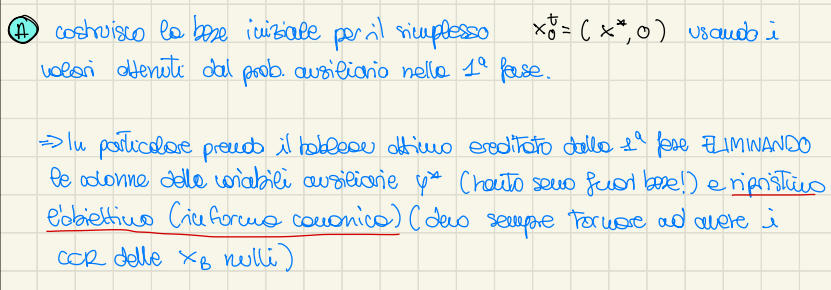 A costruisco la base iniziale per il simplesso x₀ᵗ = (x*, 0) usando i
valori ottenuti dal prob. ausiliario nella 1ª fase.
⇒ In particolare prendo il tableau ottimo ereditato dalla 1ª fase ELIMINANDO
le colonne delle variabili ausiliarie y* (tanto sono fuori base!) e ripristino
l'obiettivo (in forma canonica) (devo sempre tornare ad avere i
CCR delle x_B nulli)